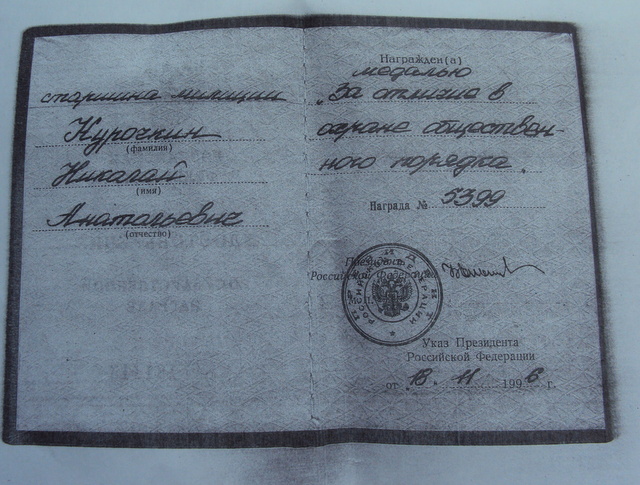 старшина милиции
Курочкин
(фамилия)
Николай
(имя)
Анатольевич
(отчество)
Награжден(а)
медалью
„За отличие в
охране обществен-
ного порядка"
Награда № 5399
Президент
Российской Федерации
М.П.
Указ Президента
Российской Федерации
от 18. 11 1996 г.